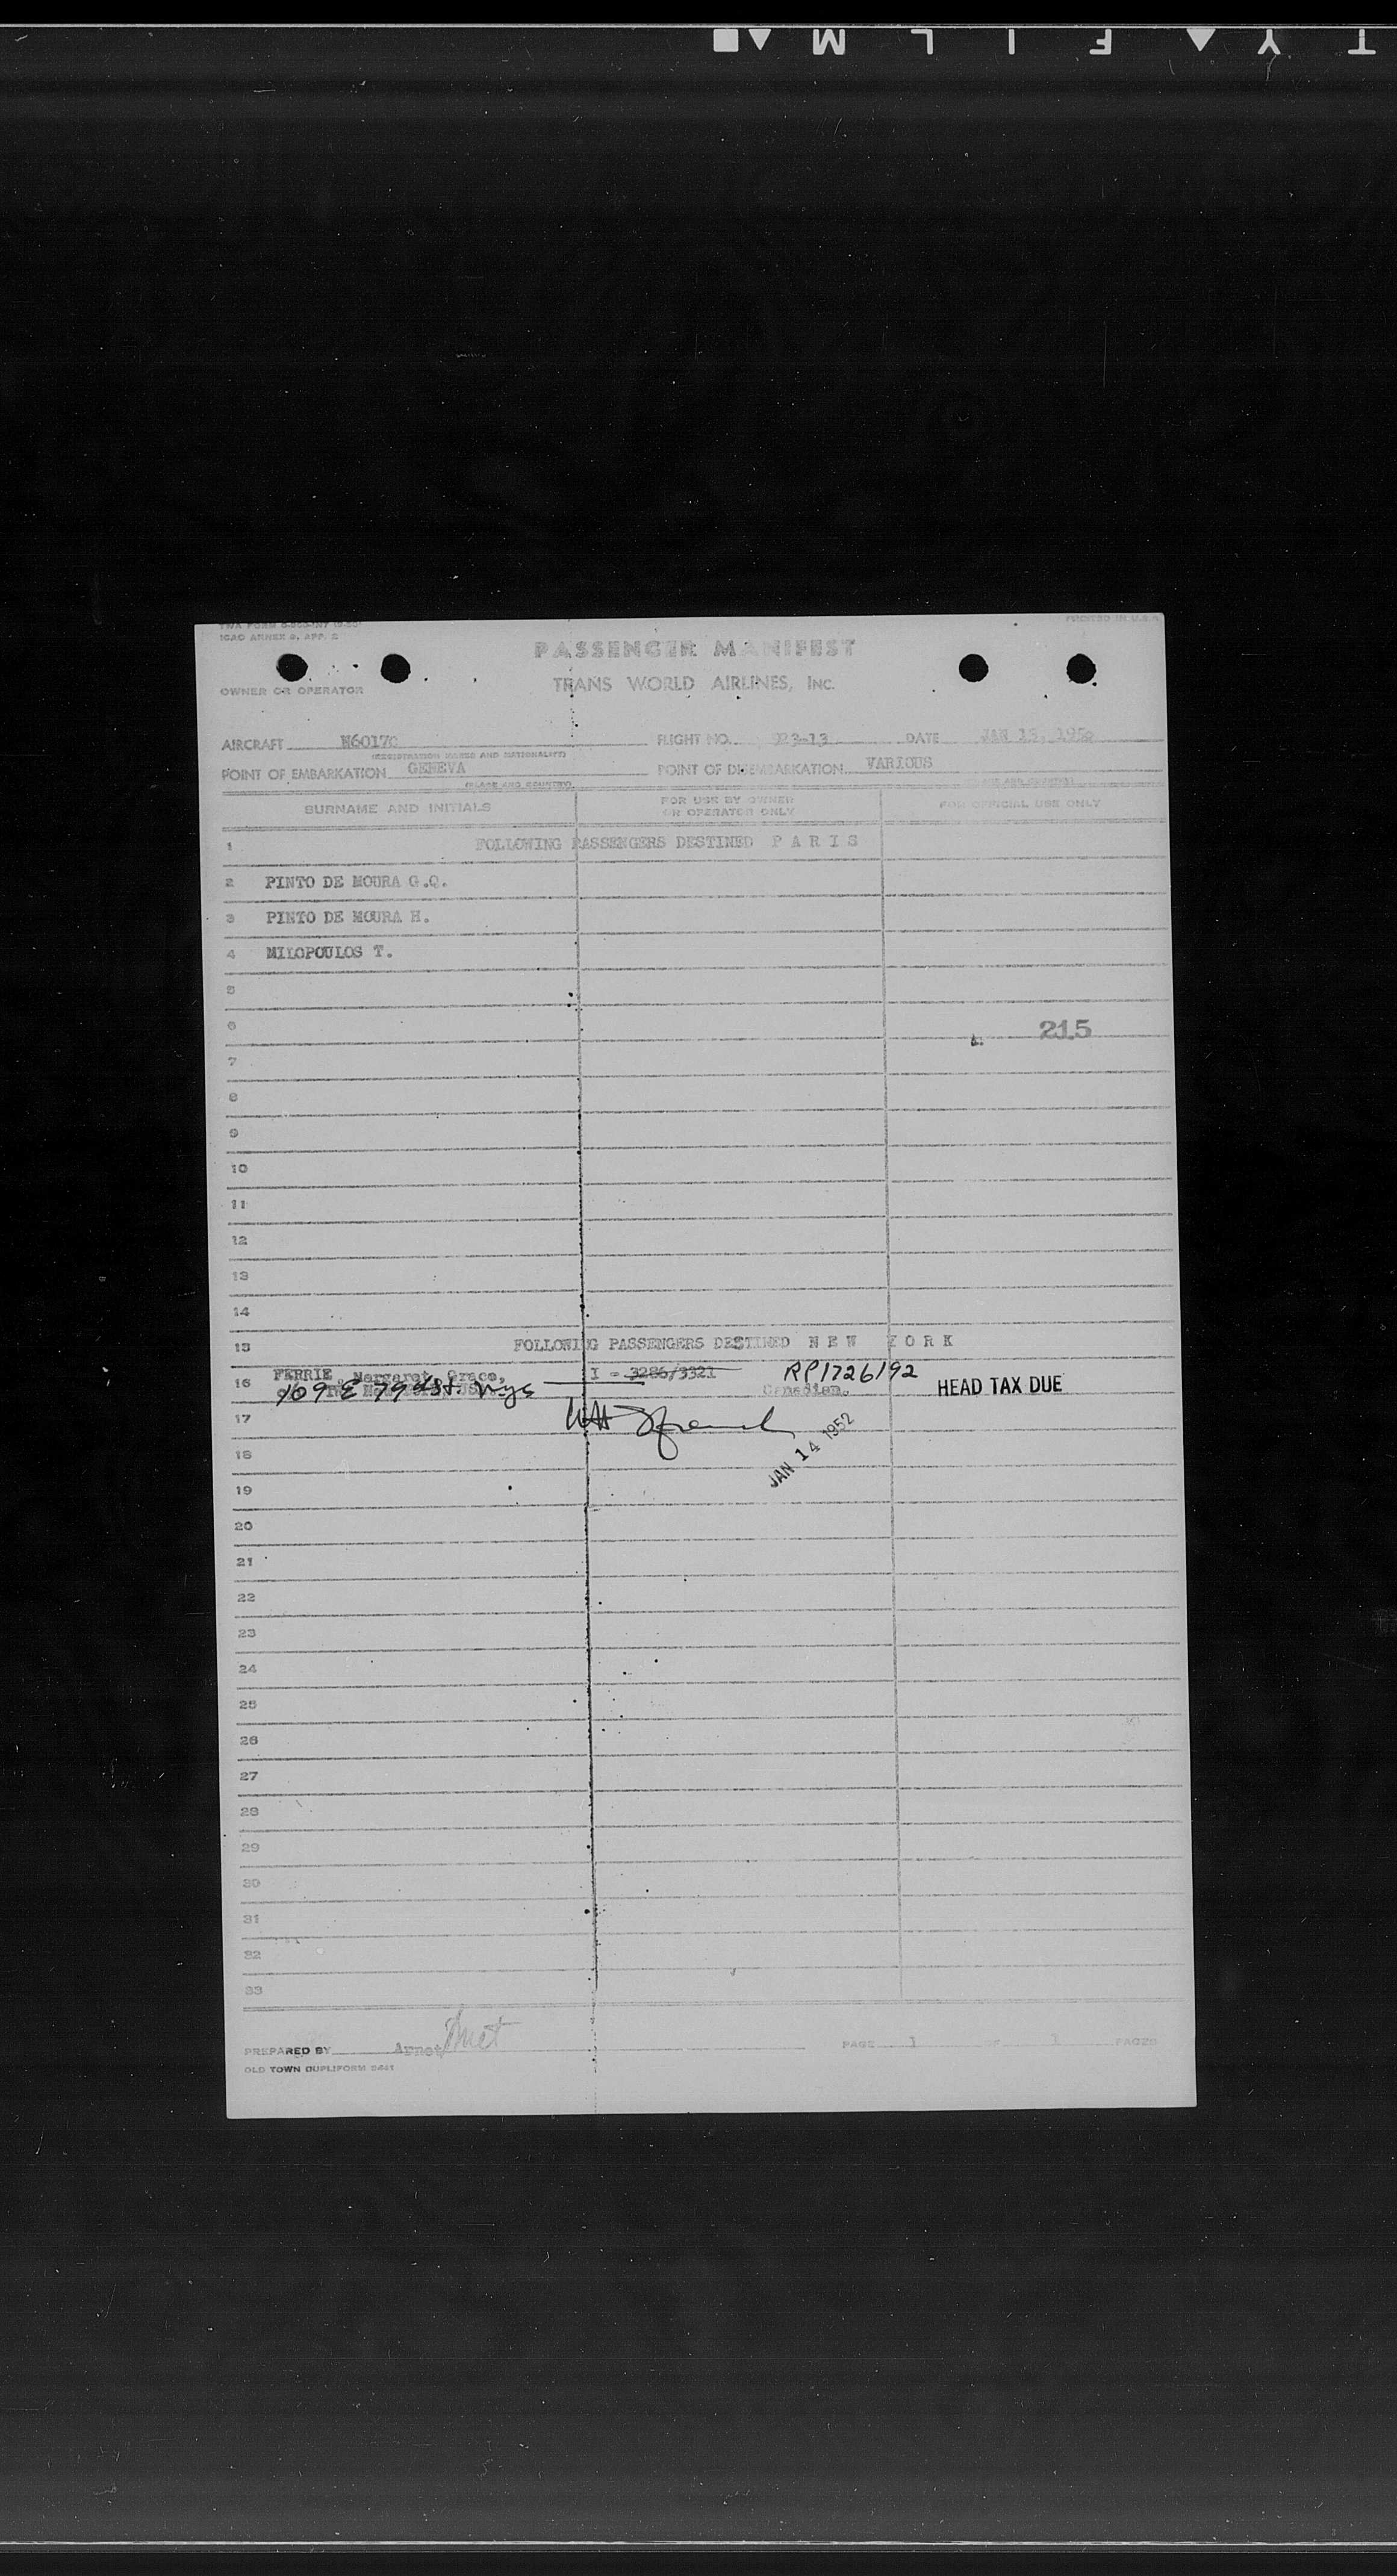 T Y F I L M
TWA FORM
ICAO ANNEX 9, APP. 2
PRINTED IN U.S.A.
PASSENGER MANIFEST
OWNER OR OPERATOR
TRANS WORLD AIRLINES, INC.
AIRCRAFT N6017C FLIGHT NO. 923-13 DATE JAN 13, 195
(REGISTRATION MARKS AND NATIONALITY)
POINT OF EMBARKATION GENEVA POINT OF DISEMBARKATION VARIOUS
(PLACE AND COUNTRY) (PLACE AND COUNTRY)
SURNAME AND INITIALS FOR USE BY OWNER OR OPERATOR ONLY FOR OFFICIAL USE ONLY
1 FOLLOWING PASSENGERS DESTINED P A R I S
2 PINTO DE MOURA G.Q.
3 PINTO DE MOURA H.
4 MILOPOULOS T.
5
6 215
7
8
9
10
11
12
13
14
15 FOLLOWING PASSENGERS DESTINED N E W Y O R K
FERRIE, Margaret, Grace, I - 3286/3321 RP1726192
16 109 E 79th St. NYC Canadian. HEAD TAX DUE
17
JAN 14 1952
18
19
20
21
22
23
24
25
26
27
28
29
30
31
32
33
PREPARED BY Arnet Arnet PAGE 1 OF 1 PAGES
OLD TOWN DUPLIFORM 5441